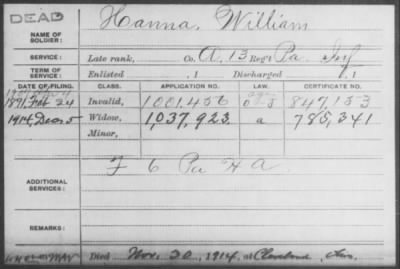 DEAD
Hanna, William
NAME OF SOLDIER:
SERVICE: Late rank, Co. A, 13 Reg't Pa Inf
TERM OF SERVICE: Enlisted , 1 Discharged , 1
DATE OF FILING. CLASS. APPLICATION NO. LAW. CERTIFICATE NO.
1891 Feb 24 Invalid, 1001,456 847,153
1914, Dec 5 Widow, 1,037,923 a 785,341
Minor,
F 6 Pa H A
ADDITIONAL SERVICES:
REMARKS:
Died Nov. 20, 1914, at Cleveland,